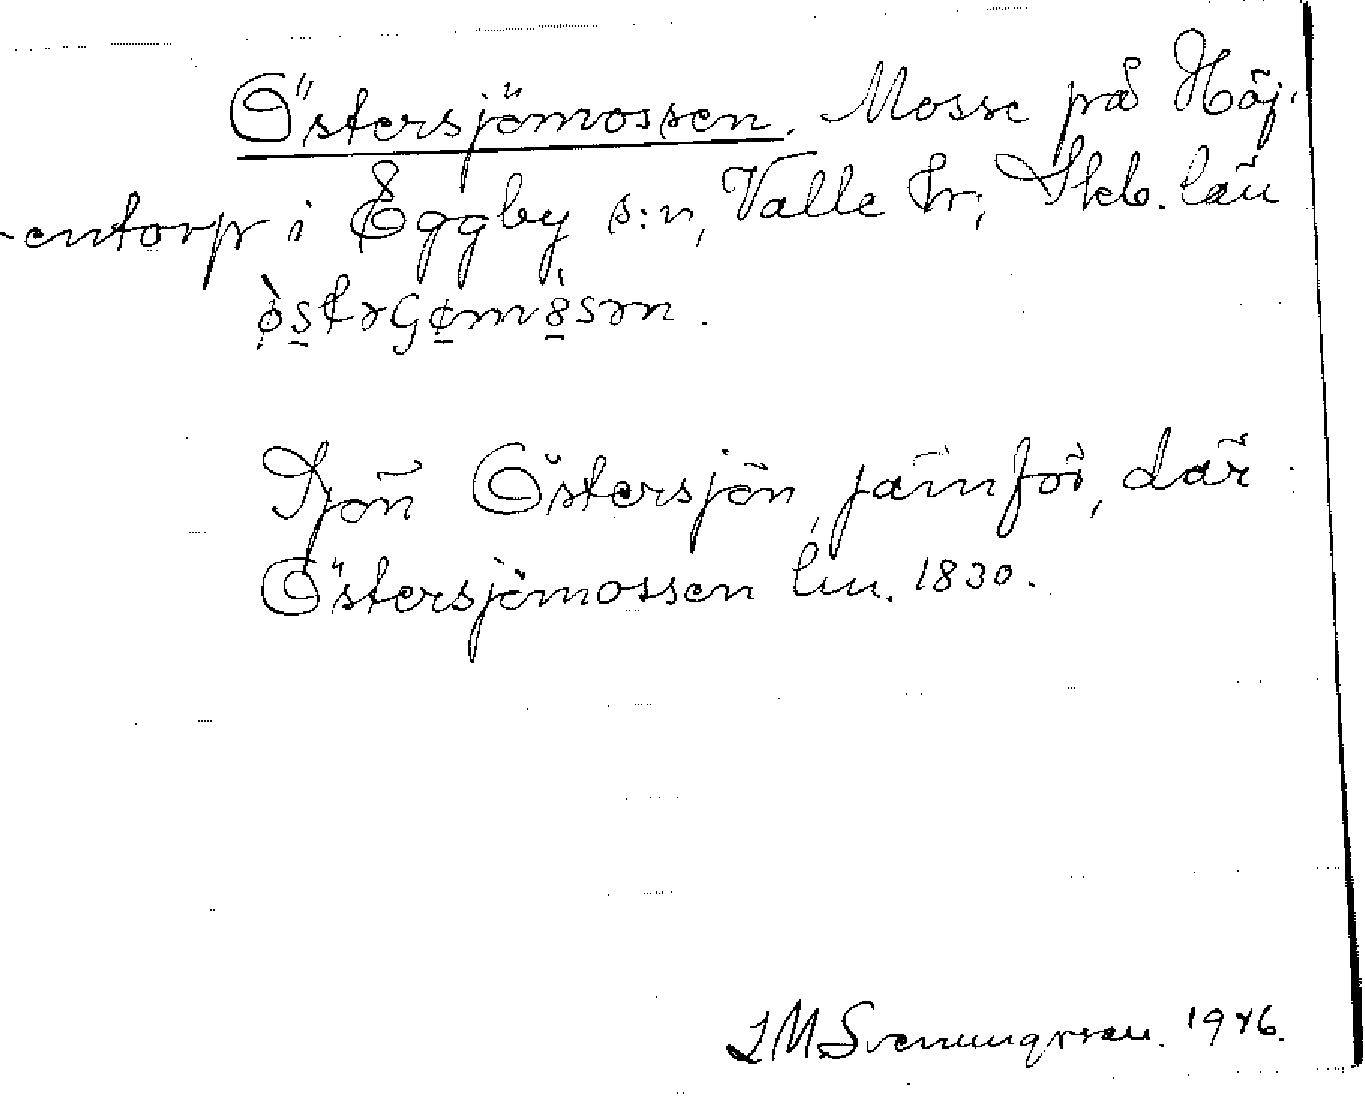 Östersjömossen. Mosse på Höj-
entorp i Eggby s:n, Valle hr, Skb. län
Sjön Östersjön, jämför, där
Östersjömossen lm. 1830.
Svenungsson. 1946.